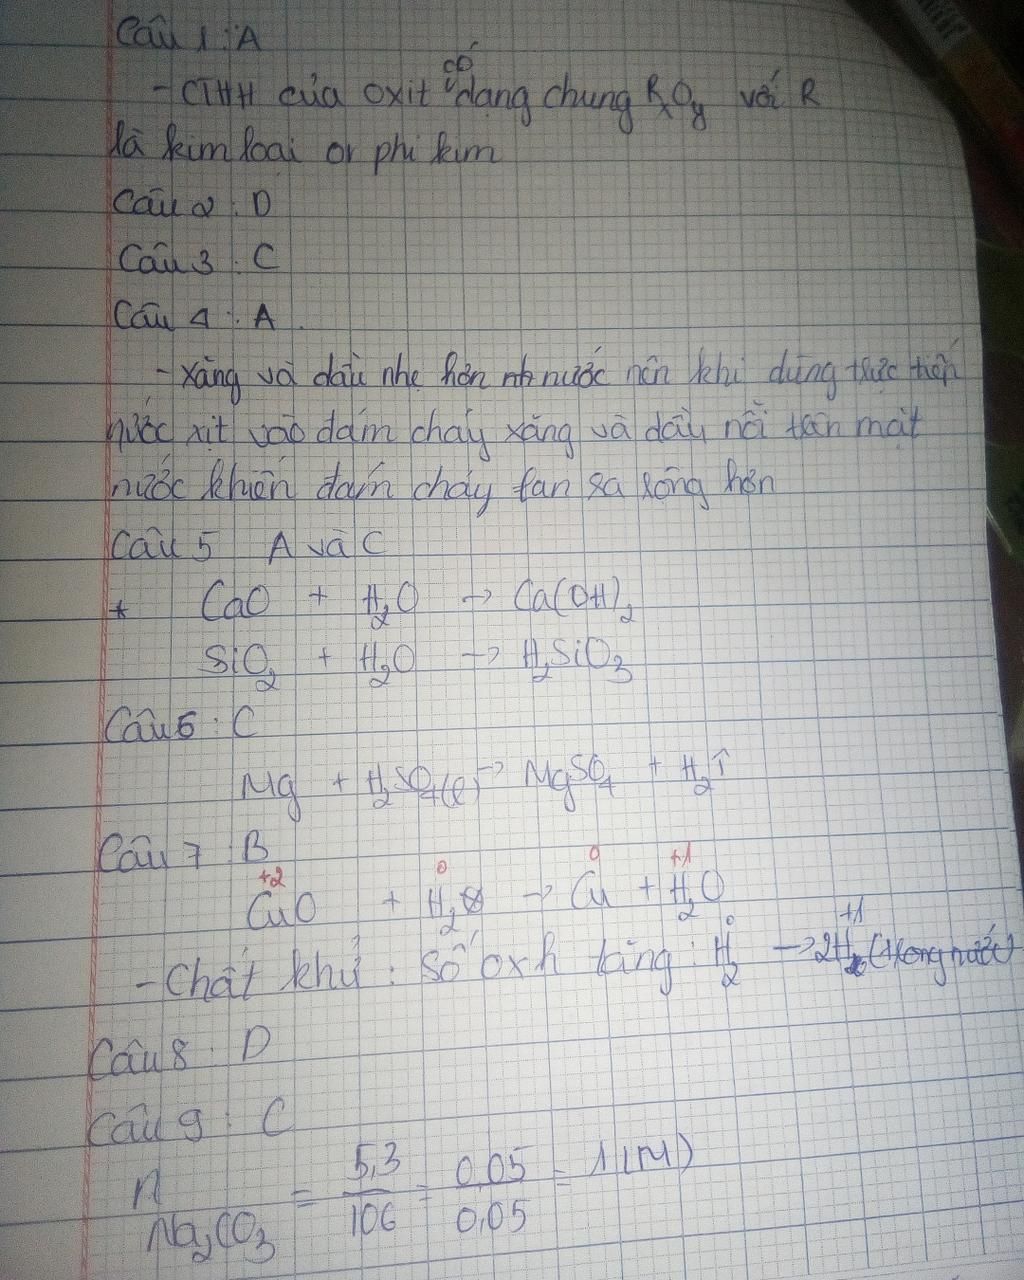 Câu 1: A
- CTHH của oxit có dạng chung RxOy với R
là kim loại or phi kim
Câu 2: D
Câu 3: C
Câu 4: A.
- xăng và dầu nhẹ hơn nước nên khi dùng trực tiếp
nước xịt vào đám cháy xăng và dầu nổi trên mặt
nước khiến đám cháy lan ra rộng hơn
Câu 5 A và C
* CaO + H₂O → Ca(OH)₂
SiO₂ + H₂O → H₂SiO₃
Câu 6: C
Mg + H₂SO₄(l) → MgSO₄ + H₂↑
Câu 7: B
+2 0 0 +1
CuO + H₂ → Cu + H₂O
0 +1
- Chất khử: Số oxh tăng: H₂ → 2H (trong nước)
Câu 8: D
Câu 9: C
n Na₂CO₃ = 5,3/106 = 0,05/0,05 = 1 (M)